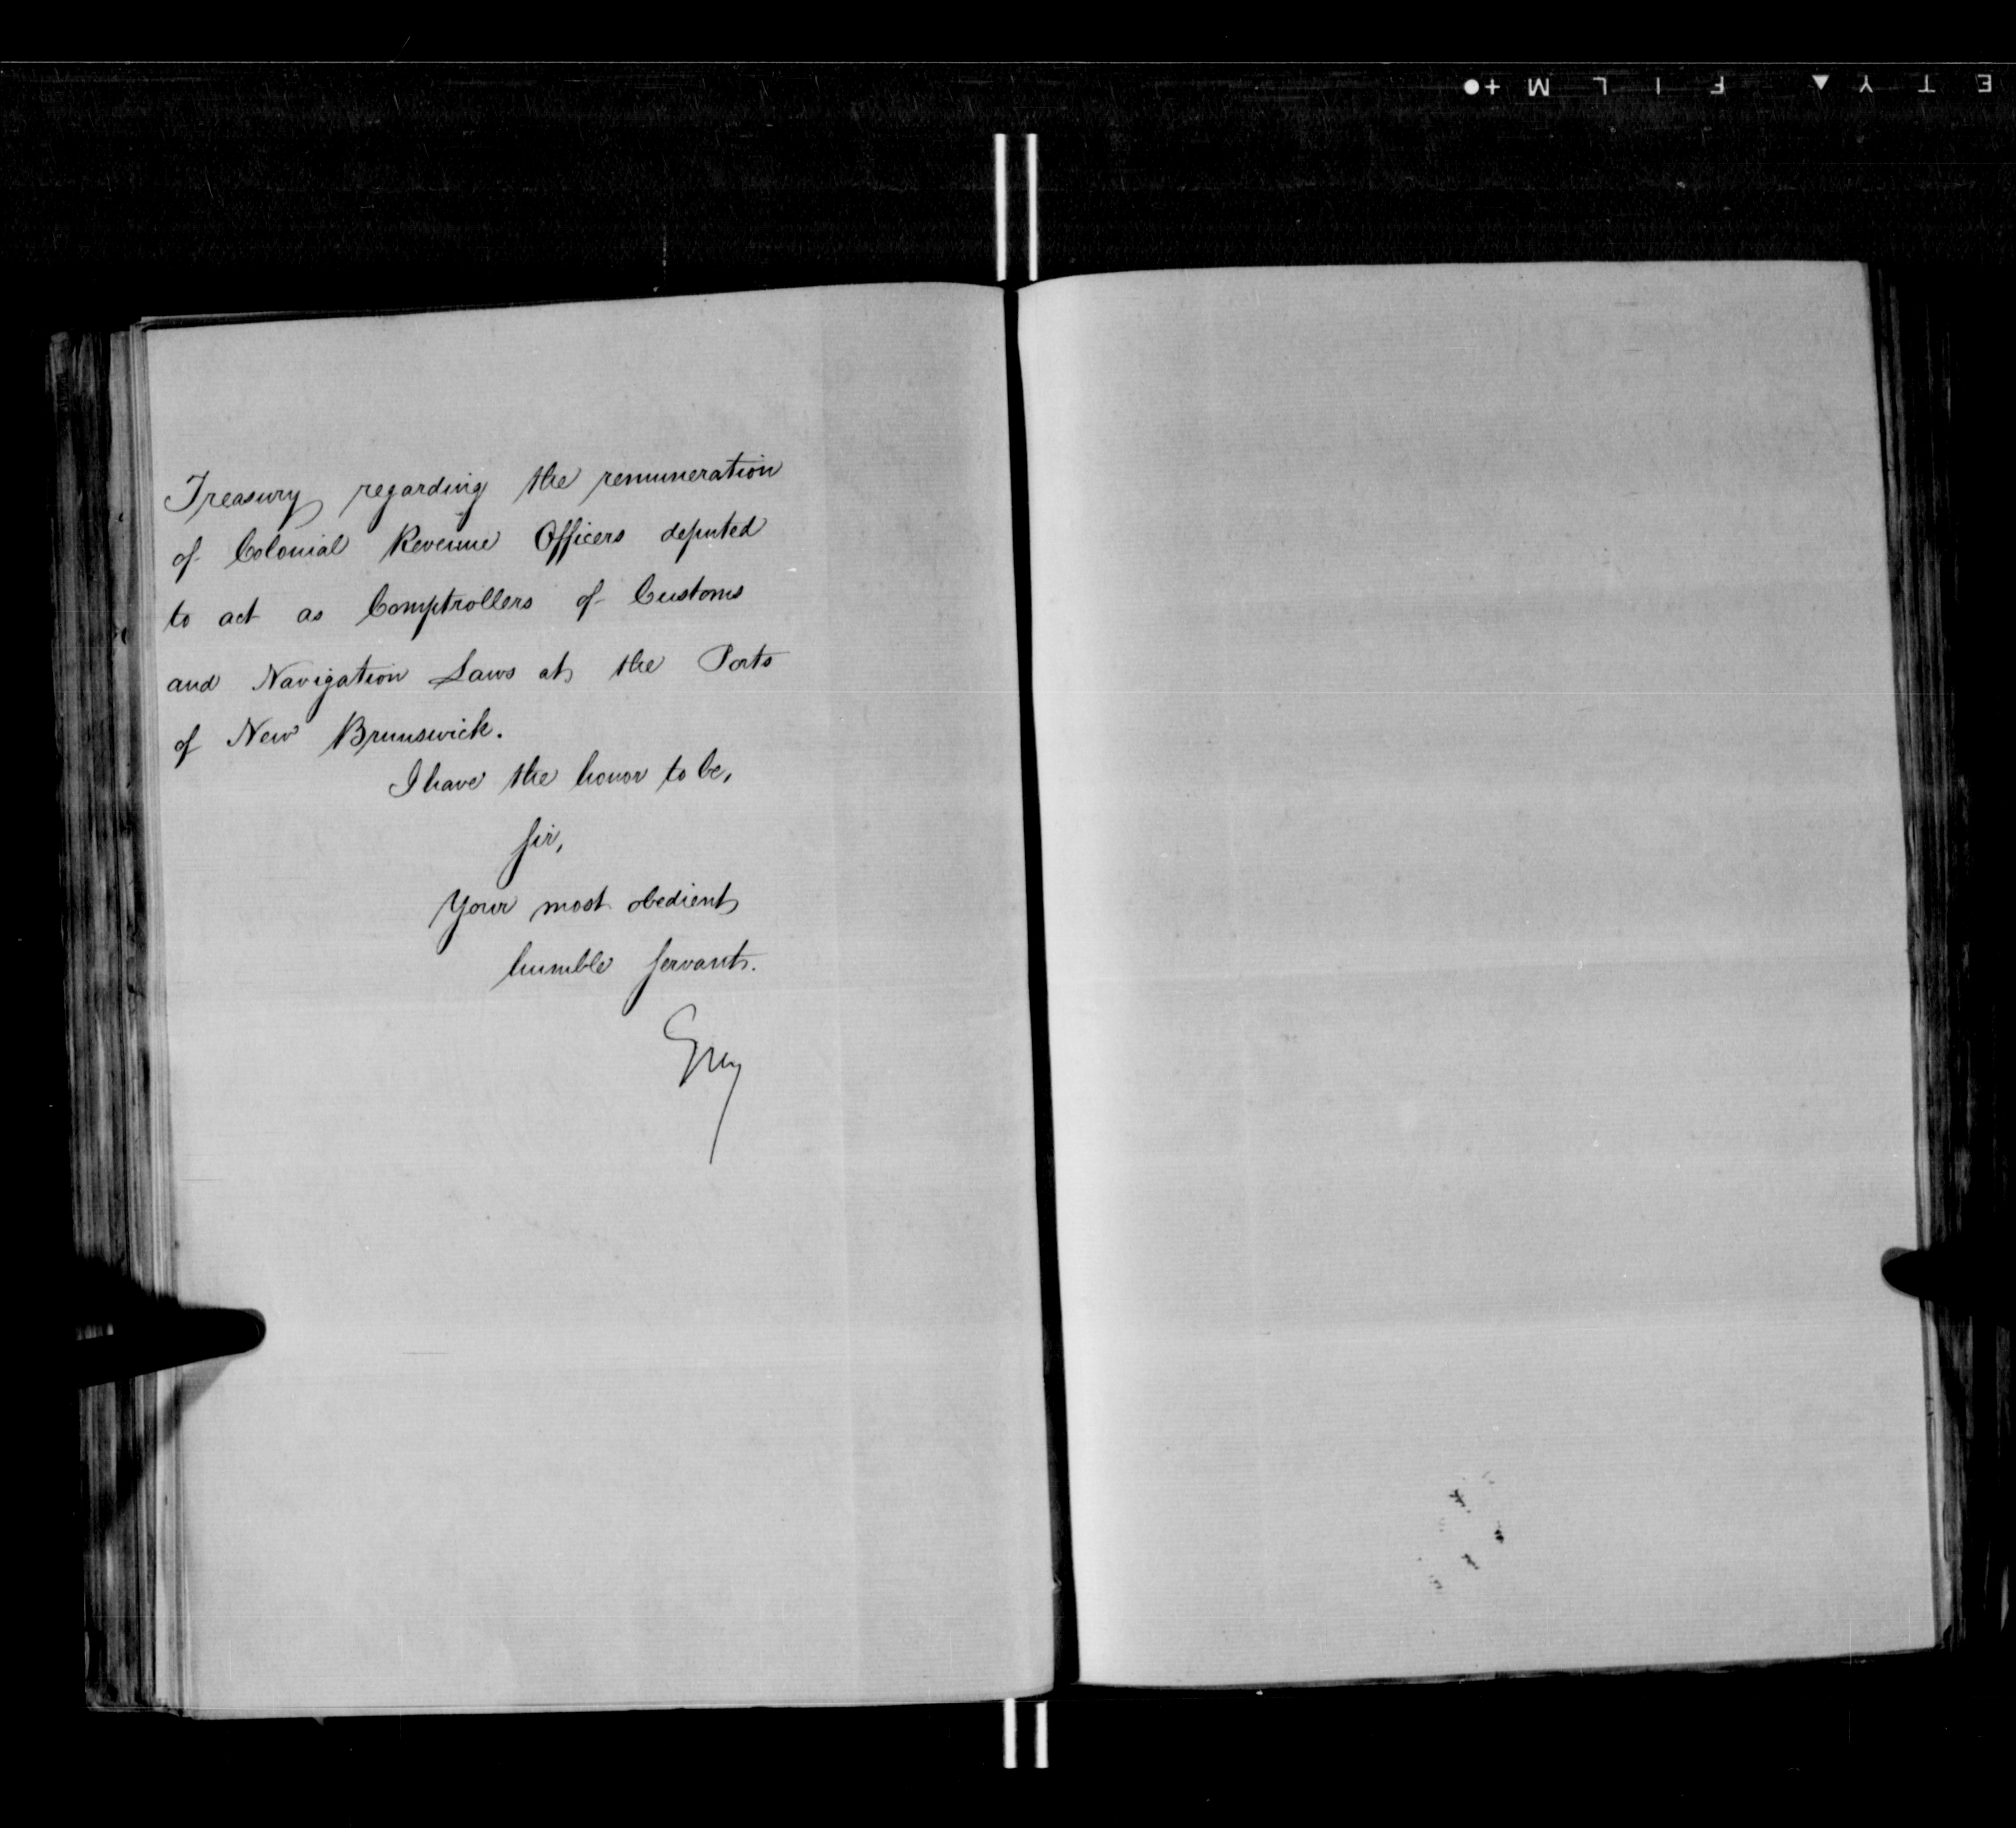 Treasury regarding the remuneration
of Colonial Revenue Officers deputed
to act as Comptrollers of Customs
and Navigation Laws at the Ports
of New Brunswick.
I have the honor to be,
Sir,
Your most obedient
humble Servant.
Grey
E T Y ▲ F I L M +●